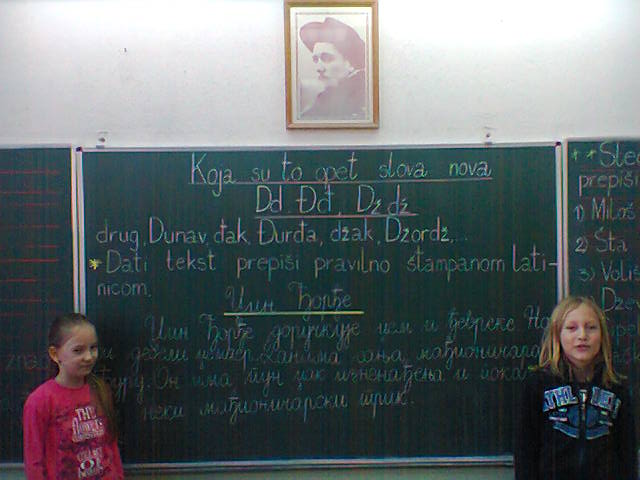 Koja su to opet slova nova
Dd Đđ, Dž dž
drug, Dunav, đak, Đurđa, džak, Džordž,...
*Dati tekst prepiši pravilno štampanom lati-
nicom.
Џин Ђорђе
Џин Ђорђе доручкује џем и ђевреке. На
и дебели џемпер. Данима сања мађионичара
Ђуру. Он има пун џак изненађења и
неки мађионичарски трик.
* *Sled
prepiši
1) Miloš
2) Šta
3) Voli
Dže
THE
OT
ATHL